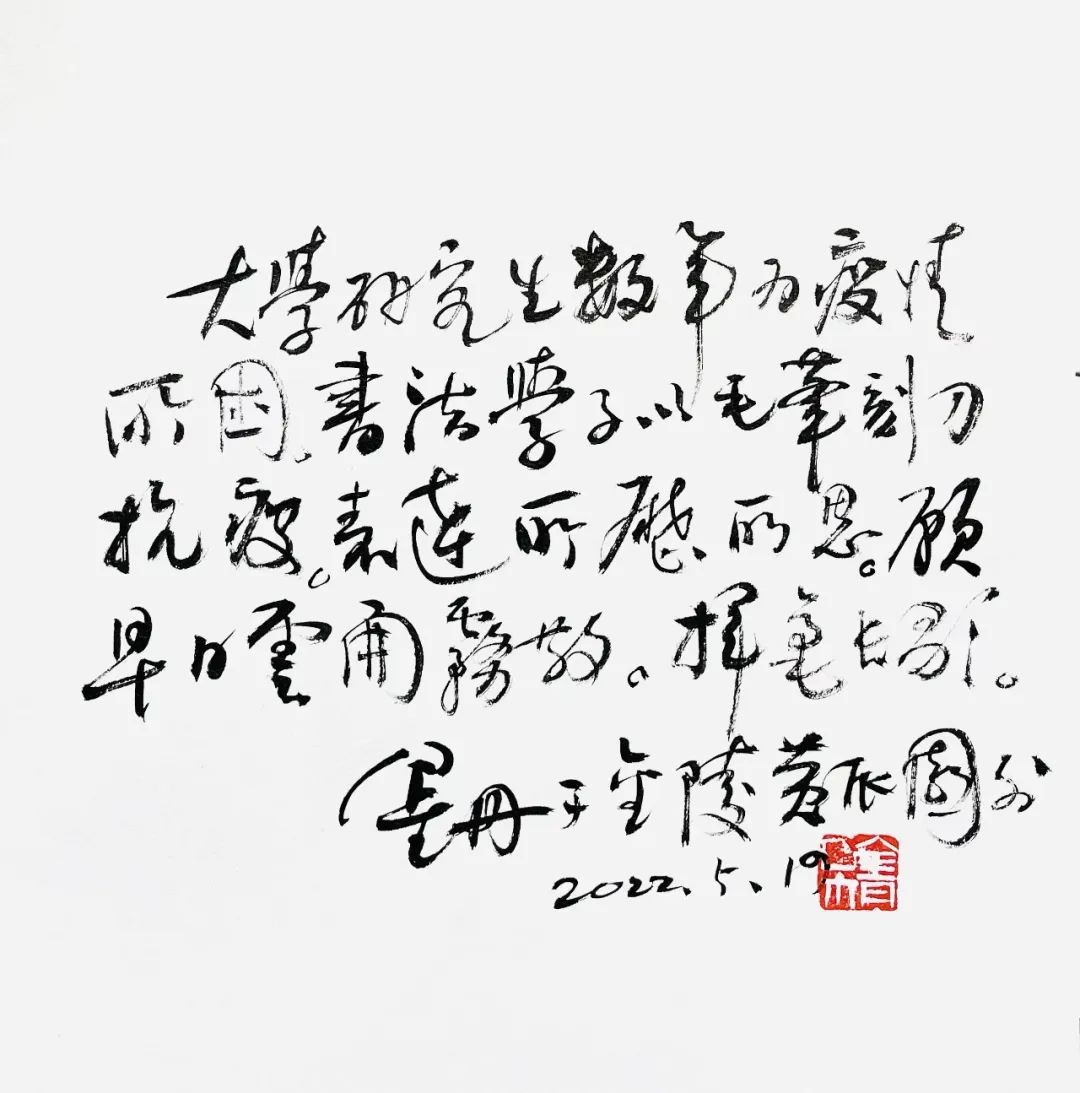 大學研究生數年为疫情
所困、書法學子以毛筆刻刀
抗疫。表達所感所思。願
早日雲開霧散。揮毫长
于金陵黄瓜園
2022.5.19